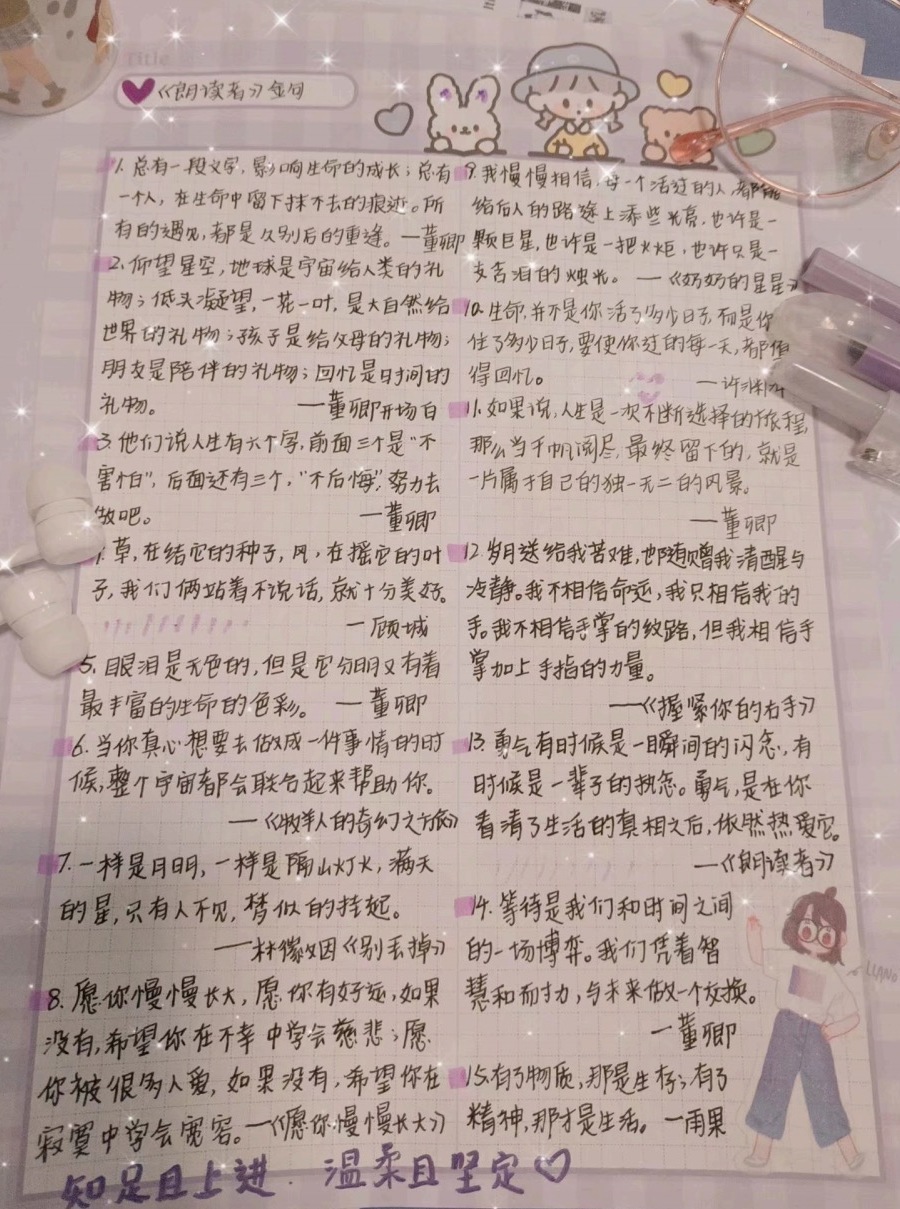 Title
《朗读者》金句
1. 总有一段文字，影响生命的成长；总有
一个人，在生命中留下抹不去的痕迹。所
有的遇见，都是久别后的重逢。—董卿
2. 仰望星空，地球是宇宙给人类的礼
物；低头凝望，一花一叶，是大自然给
世界的礼物；孩子是给父母的礼物；
朋友是陪伴的礼物；回忆是时间的
礼物。
—董卿开场白
3. 他们说人生有六个字，前面三个是“不
害怕”，后面还有三个，“不后悔”，努力去
做吧。
—董卿
草，在结它的种子，风，在摇它的叶
子，我们俩站着不说话，就十分美好。
—顾城
5. 眼泪是无色的，但是它分明又有着
最丰富的生命的色彩。—董卿
6. 当你真心想要去做成一件事情的时
候，整个宇宙都会联合起来帮助你。
—《牧羊人的奇幻之旅》
7. 一样是月明，一样是隔山灯火，满天
的星，只有人不见，梦似的挂起。
—林徽因《别丢掉》
8. 愿你慢慢长大，愿你有好运，如果
没有，希望你在不幸中学会慈悲；愿
你被很多人爱，如果没有，希望你在
寂寞中学会宽容。—《愿你慢慢长大》
9. 我慢慢相信，每一个活过的人，都能
给后人的路途上添些光亮，也许是一
颗巨星，也许是一把火炬，也许只是一
支含泪的烛光。—《奶奶的星星》
10. 生命，并不是你活了多少日子，而是你
住了多少日子，要使你过的每一天，都值
得回忆。
—许渊冲
11. 如果说，人生是一次不断选择的旅程，
那么当千帆阅尽，最终留下的，就是
一片属于自己的独一无二的风景。
—董卿
12. 岁月送给我苦难，也随赠我清醒与
冷静。我不相信命运，我只相信我的
手。我不相信手掌的纹路，但我相信手
掌加上手指的力量。
—《握紧你的右手》
13. 勇气有时候是一瞬间的闪念，有
时候是一辈子的执念。勇气，是在你
看清了生活的真相之后，依然热爱它。
—《朗读者》
14. 等待是我们和时间之间
的一场博弈。我们凭着智
慧和耐力，与未来做一个交换。
—董卿
15. 有了物质，那是生存；有了
精神，那才是生活。—雨果
LIANO
知足且上进．温柔且坚定♡